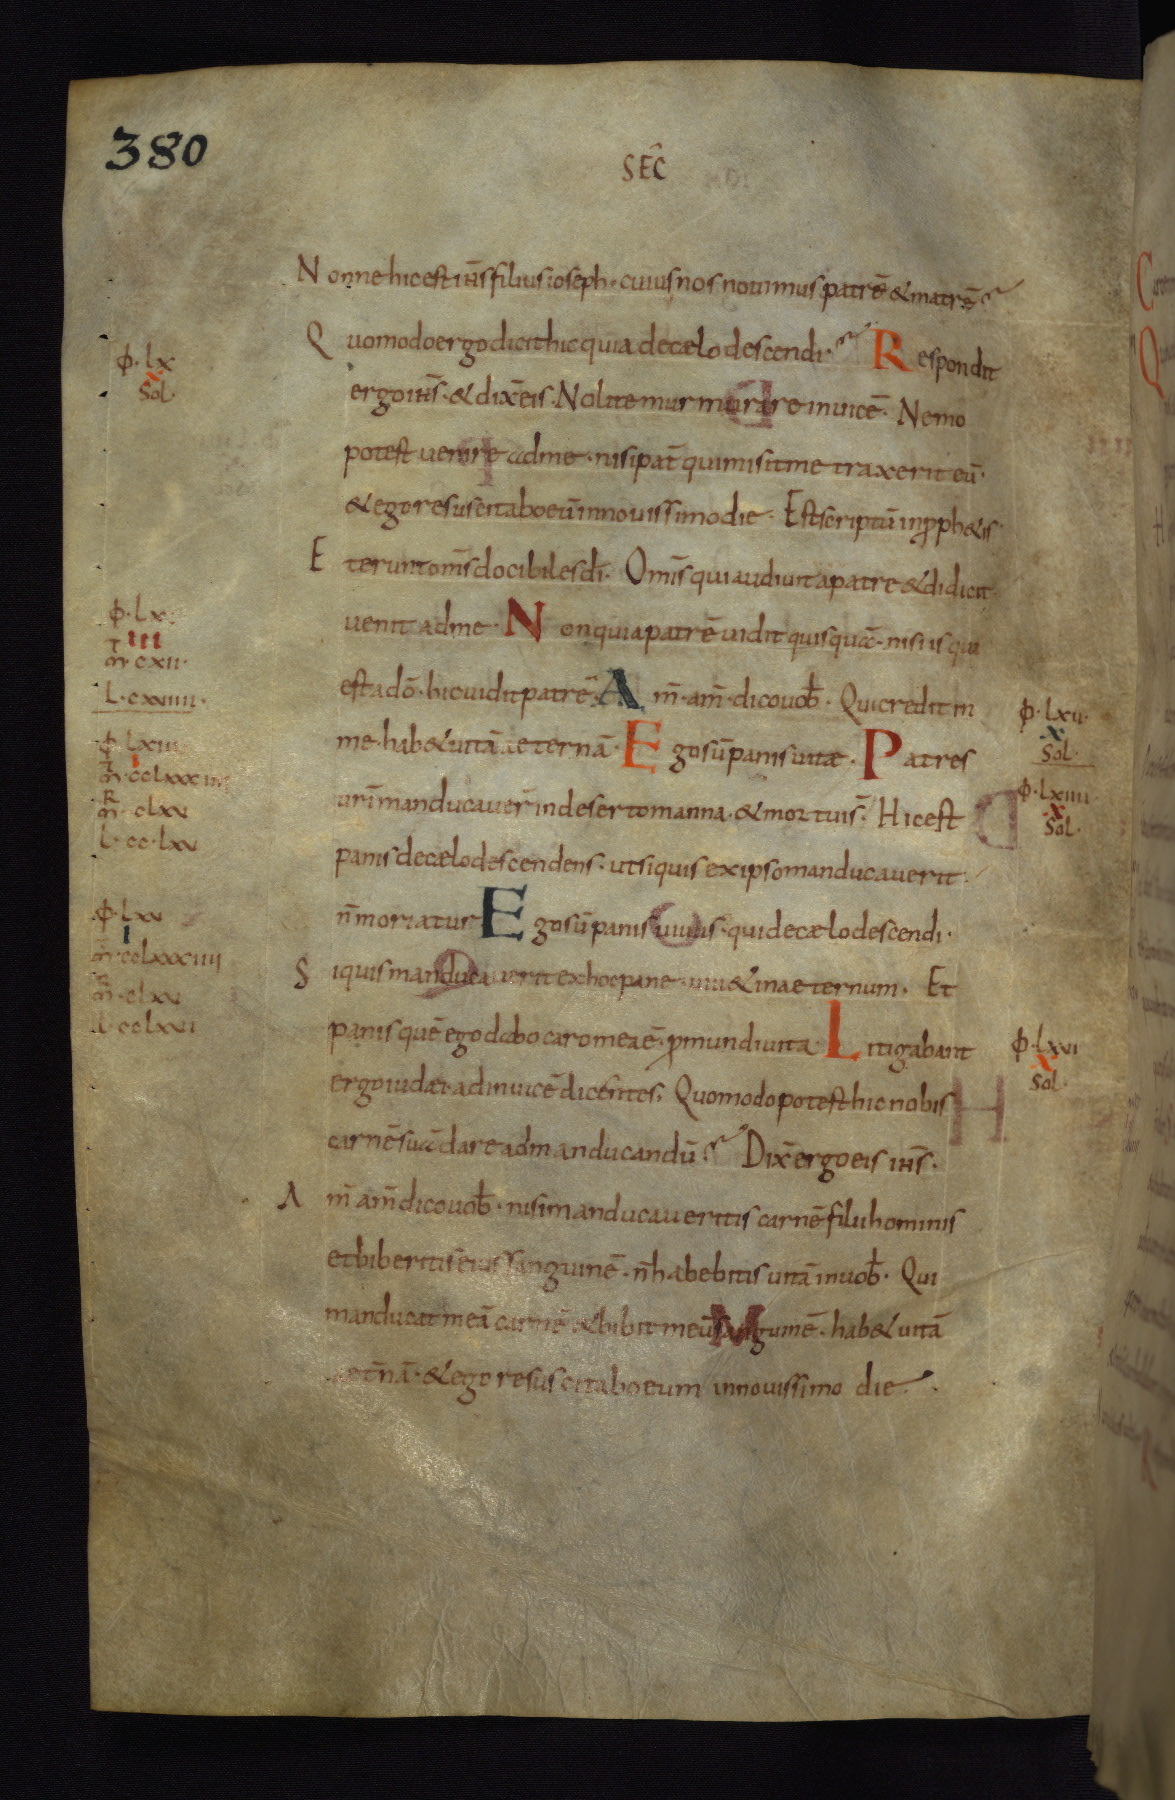 380
SEC̄
Nonne hic est ih̄s filius ioseph · cuius nos nouimus patrē & matrē
Quomodo ergo dicit hic quia de cælo descendi · Respondit
φ · lx
x
Sol ·
ergo ih̄s · & dix̄ eis · Nolite murmurare inuicē · Nemo
potest uenire ad me · nisi pat̄ qui misit me traxerit eū ·
& ego resuscitabo eū in nouissimo die · Est scriptū in pph&is ·
Et erunt om̄s docibiles dī · Om̄s qui audiuit a patre & didicit ·
φ · lx
III
m̄ · cxii ·
L · cxviiii ·
uenit ad me · Non quia patrē uidit quisquā · nisi is qui
est a dō · hic uidit patrē · Am̄ · am̄ · dico uob̄ · Qui credit in
φ · lxii ·
x
Sol ·
me · hab& uitā aeternā · Ego sū panis uitæ · Patres
φ · lxiii
I
m̄ · cclxxxiiii
m̄ · clxv
L · cc · lxv
φ · lxiiii ·
x
Sol ·
urī manducauer̄ in deserto manna · & mortui s̄ · Hic est
panis de cælo descendens · ut si quis ex ipso manducauerit ·
n̄ moriatur Ego sū panis uiuus · qui de cælo descendi ·
φ · lxv
I
m̄ · cclxxxiiii
m̄ · clxv
L · cclxvi
Si quis manducauerit ex hoc pane · uiu& in aeternum · Et
panis quē ego dabo caro mea ē · p mundi uita · Litigabant
φ · lxvi
x
Sol ·
ergo iudæi adinuicē dicentes · Quomodo potest hic nobis
carnē suā dare ad manducandū Dix̄ ergo eis ih̄s ·
Am̄ am̄ dico uob̄ · nisi manducaueritis carnē filii hominis
et biberitis eius sanguinē · n̄ habebitis uitā in uob̄ · Qui
manducat meā carnē & bibit meū sanguinē · hab& uitā
aet̄nā · & ego resuscitabo eum in nouissimo die ·